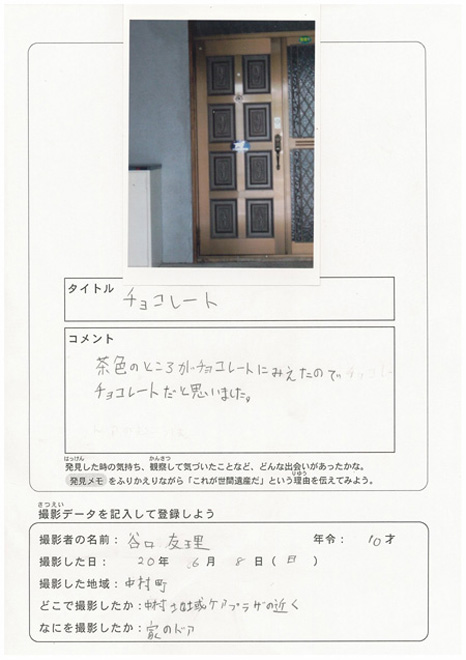 タイトル
チョコレート
コメント
茶色のところがチョコレートにみえたので
チョコレートだと思いました。
はっけん かんさつ
発見した時の気持ち、観察して気づいたことなど、どんな出会いがあったかな。
りゆう
発見メモ をふりかえりながら「これが世間遺産だ」という理由を伝えてみよう。
さつえい
撮影データを記入して登録しよう
撮影者の名前: 谷口 友理 年令: 10才
撮影した日: 20年 6月 8日(日)
撮影した地域: 中村町
どこで撮影したか: 中村地域ケアプラザの近く
なにを撮影したか: 家のドア